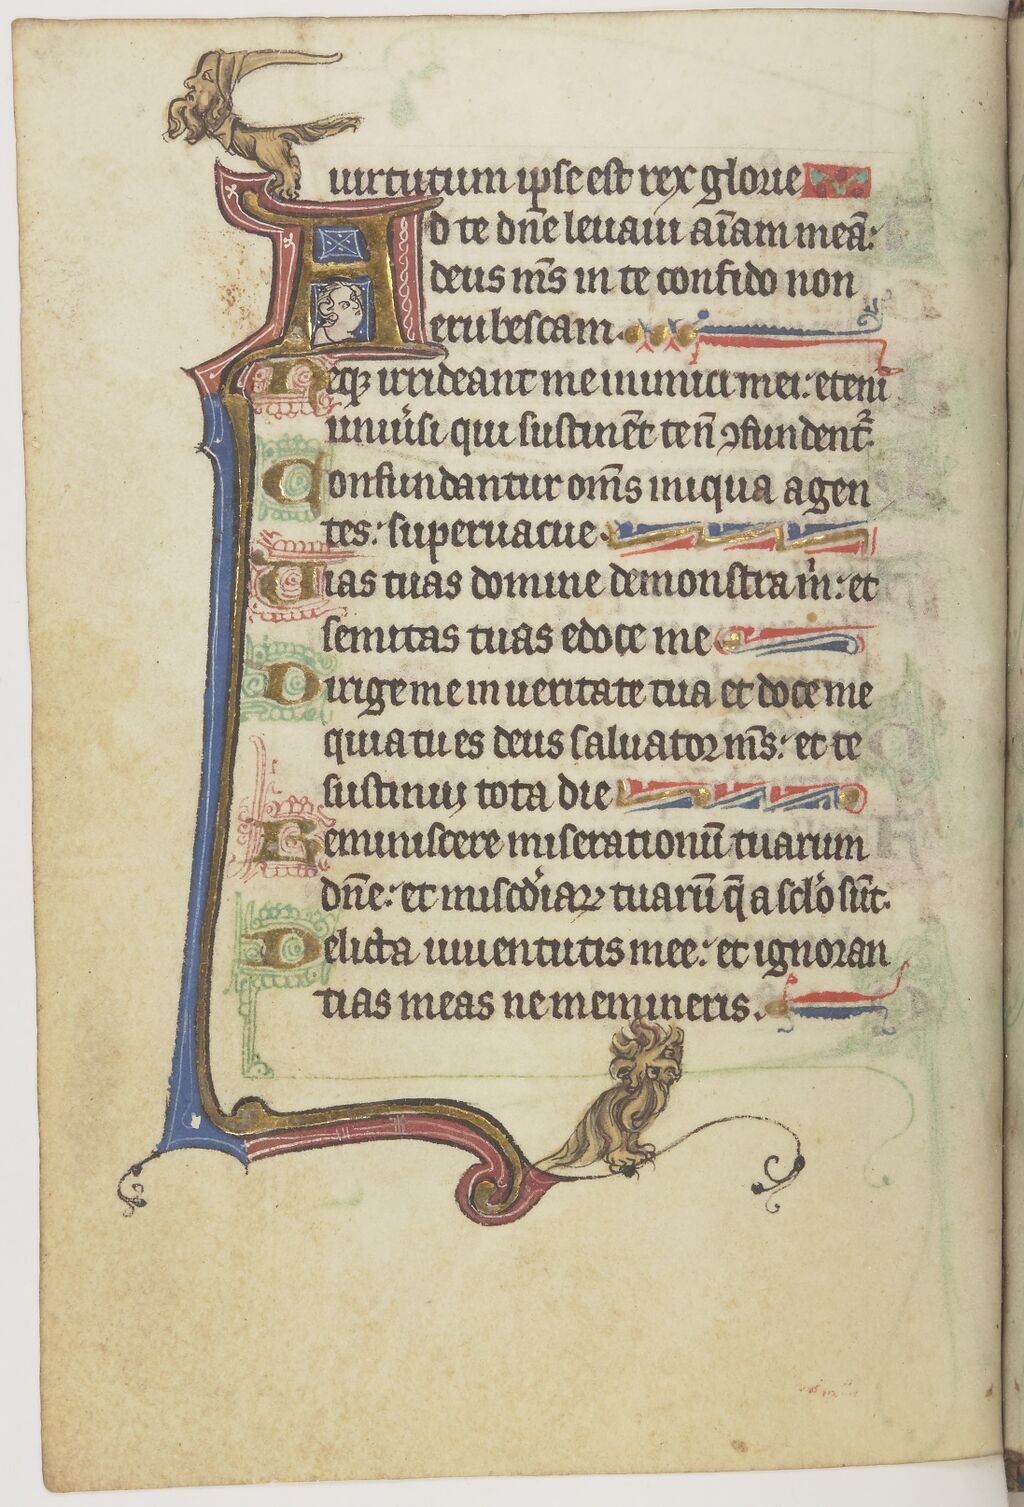 uirtutum ipse est rex glorie
Ad te dn̄e leuaui aīam meā:
deus m̄s in te confido non
erubescam.
Neqꝫ irrideant me inimici mei: eteni
uniu̾si qui sustinēt te nō ꝯfundent᷑.
Confundantur om̄s iniqua agen
tes: superuacue.
Uias tuas domine demonstra m̍: et
semitas tuas edoce me
Dirige me in ueritate tua et doce me
quia tu es deus saluator m̄s: et te
sustinui tota die
Reminiscere miserationū tuarum
dn̄e: et misc̄diaꝝ tuarū q̄ a sc̄lo sūt.
Delicta iuuentutis mee: et ignoran
tias meas ne memineris.